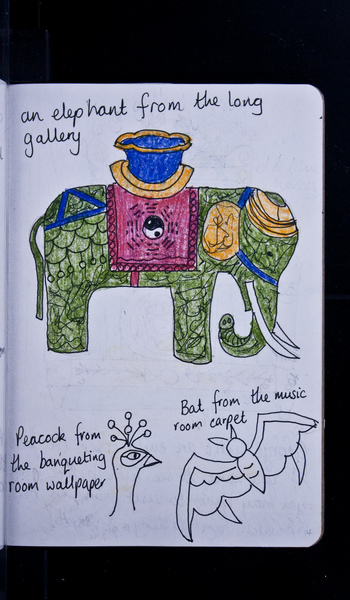 an elephant from the long
gallery
Bat from the music
room carpet
Peacock from
the banqueting
room wallpaper